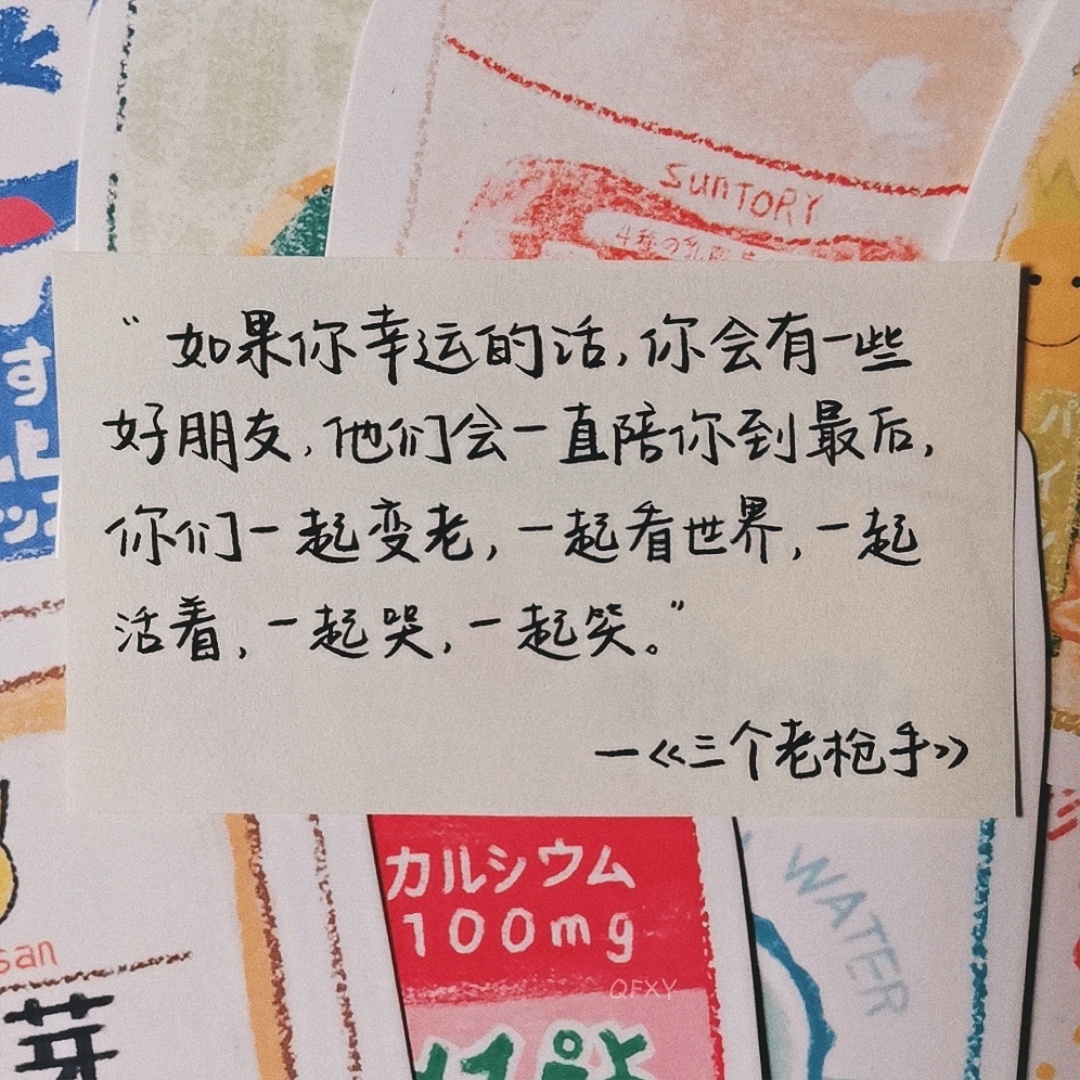 SUNTORY
す
上
“如果你幸运的话,你会有一些
好朋友,他们会一直陪你到最后,
你们一起变老,一起看世界,一起
活着,一起哭,一起笑。”
—《三个老枪手》
カルシウム
100mg
QFXY
WATER
san
芽